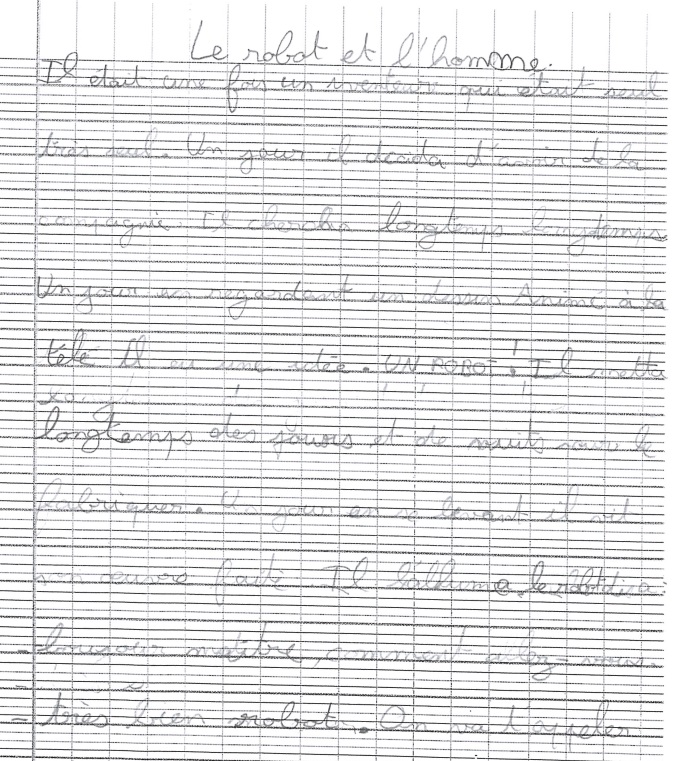 Le robot et l'homme.
Il était une fois un inventeur qui était seul
très seul. Un jour il décida d'avoir de la
compagnie. Il chercha longtemps longtemps
Un jour en regardant un dessin Animé à la
télé Il eu une idée. UN ROBOT! Il metta
longtemps des jours et de nuits pour le
fabriquer. Un jour en se levant il vit
son œuvre faite Il l'alluma, le robot dia:
- bonjour maître, comment allez-vous.
- très bien robot. On va t'appeler